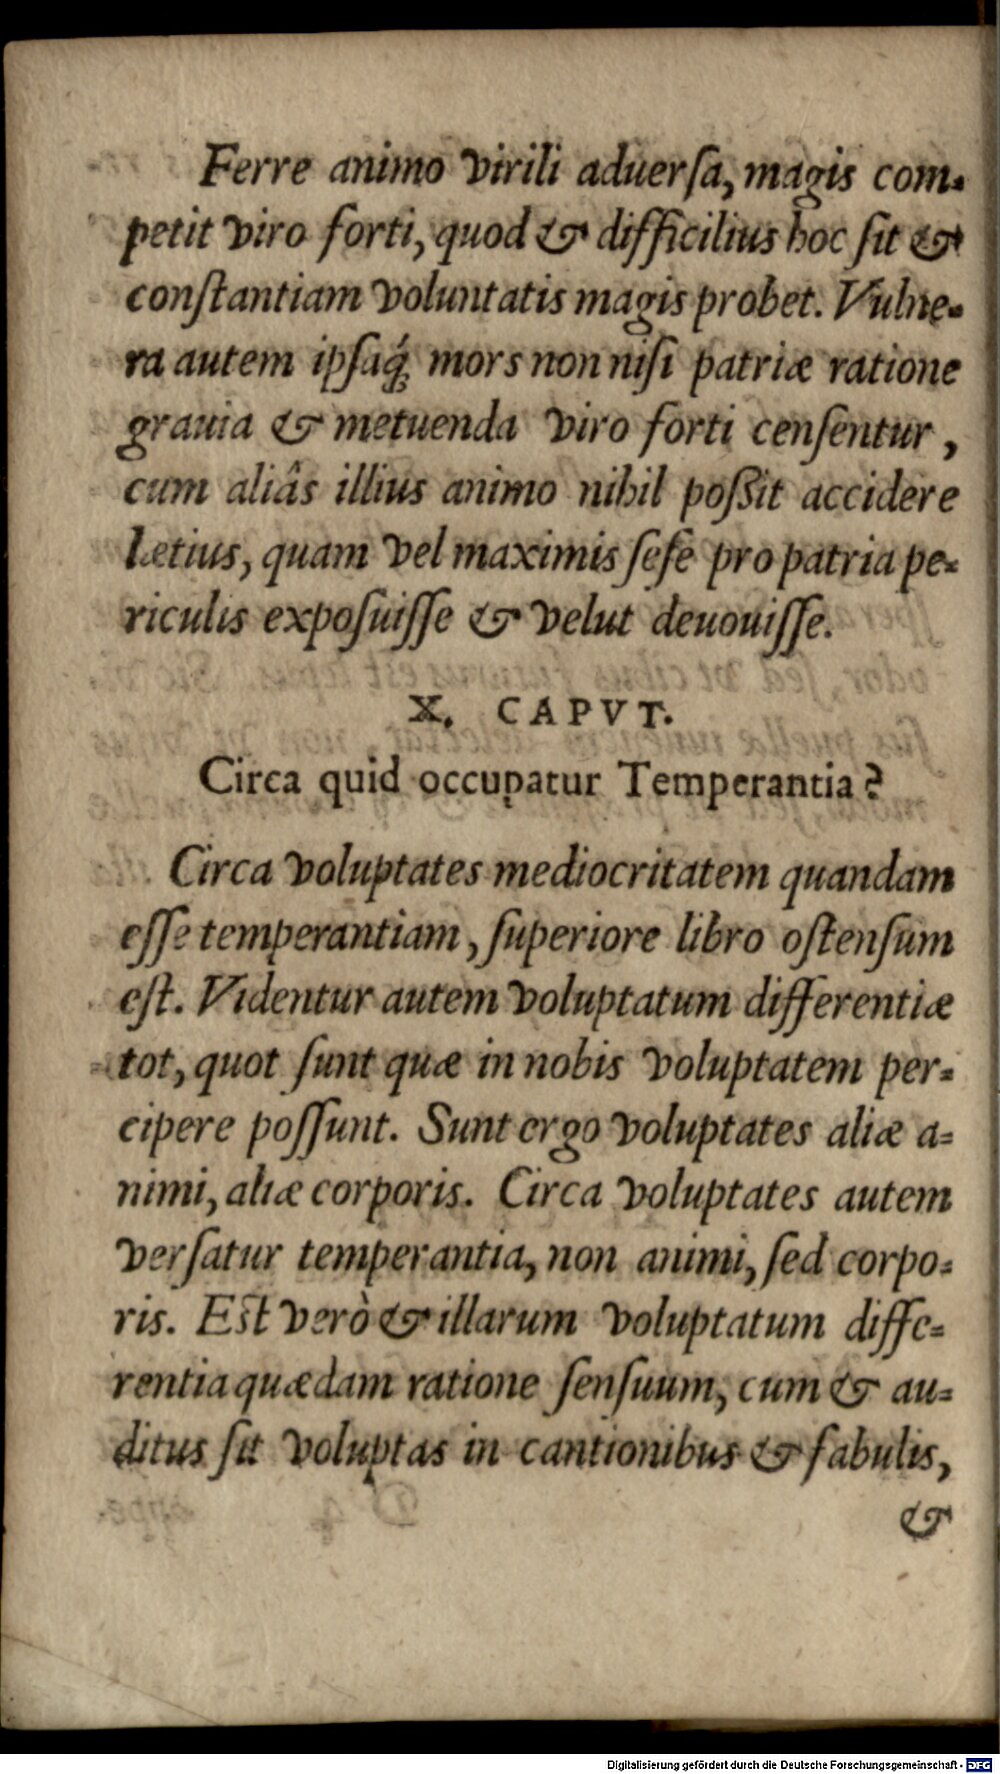 Ferre animo virili aduerſa, magis com-
petit viro forti, quod & difficilius hoc ſit &
conſtantiam voluntatis magis probet. Vulne-
ra autem ipſaq́; mors non niſi patriæ ratione
grauia & metuenda viro forti cenſentur,
cum aliâs illius animo nihil poßit accidere
lætius, quam vel maximis ſeſe pro patria pe-
riculis expoſuiſſe & velut deuouiſſe.
X. CAPVT.
Circa quid occupatur Temperantia?
Circa voluptates mediocritatem quandam
eſſe temperantiam, ſuperiore libro oſtenſum
eſt. Videntur autem voluptatum differentiæ
tot, quot ſunt quæ in nobis voluptatem per-
cipere poſſunt. Sunt ergo voluptates aliæ a-
nimi, aliæ corporis. Circa voluptates autem
verſatur temperantia, non animi, ſed corpo-
ris. Eſt verò & illarum voluptatum diffe-
rentia quædam ratione ſenſuum, cum & au-
ditus ſit voluptas in cantionibus & fabulis,
&
Digitalisierung gefördert durch die Deutsche Forschungsgemeinschaft - DFG